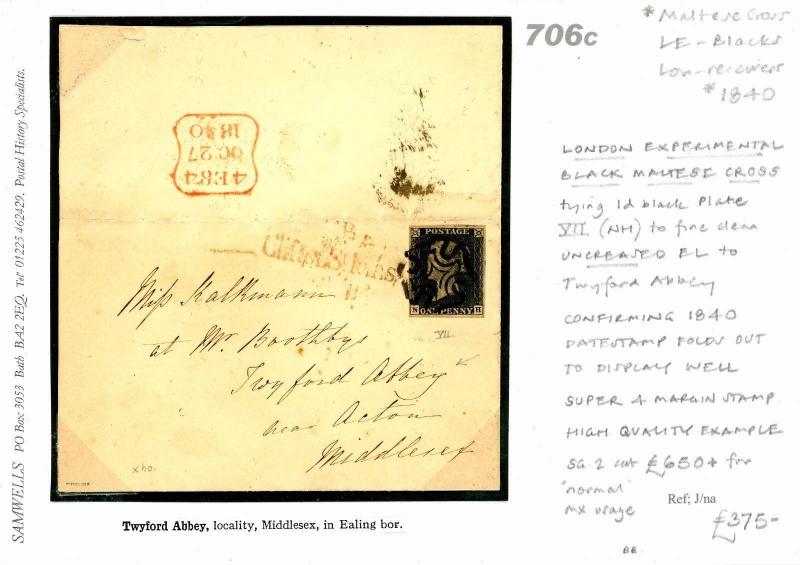 SAMWELLS PO Box 3053 Bath BA2 2EQ. Tel 01225 462429. Postal History Specialists.
4E84
OC 27
1840
POSTAGE
N ONE PENNY H
VII.
Miss Kalkmann
at Mr. Boothbys
Twyford Abbey
near Acton
Middlesex
Twyford Abbey, locality, Middlesex, in Ealing bor.
706c
* Maltese Cross
LE - Blacks
Lon - receivers
* 1840
LONDON EXPERIMENTAL
BLACK MALTESE CROSS
tying 1d black Plate
VII (NH) to fine clean
UNCREASED EL to
Twyford Abbey
CONFIRMING 1840
DATESTAMP FOLDS OUT
TO DISPLAY WELL
SUPER 4 MARGIN STAMP.
HIGH QUALITY EXAMPLE
SG.2 cat £650+ for
'normal'
mx usage
Ref; J/na
£375-
BB